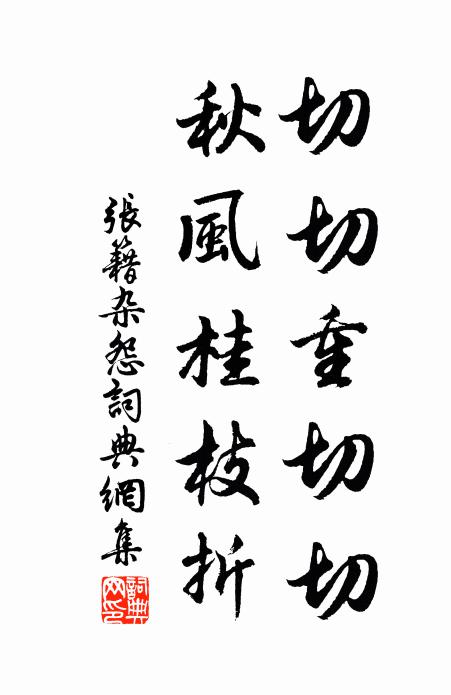 切切重切切
秋風桂枝折
張籍杂怨詞典網集